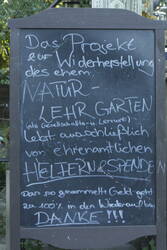 Das Projekt
zur Wiederherstellung
des ehem.
NATUR-
LEHR GARTEN
(als Gesellschafts- u. Lernort)
lebt ausschließlich
von ehrenamtlichen
HELFERN & SPENDEN
Das so gesammelte Geld geht
zu 100% in den Wiederaufbau
DANKE!!!